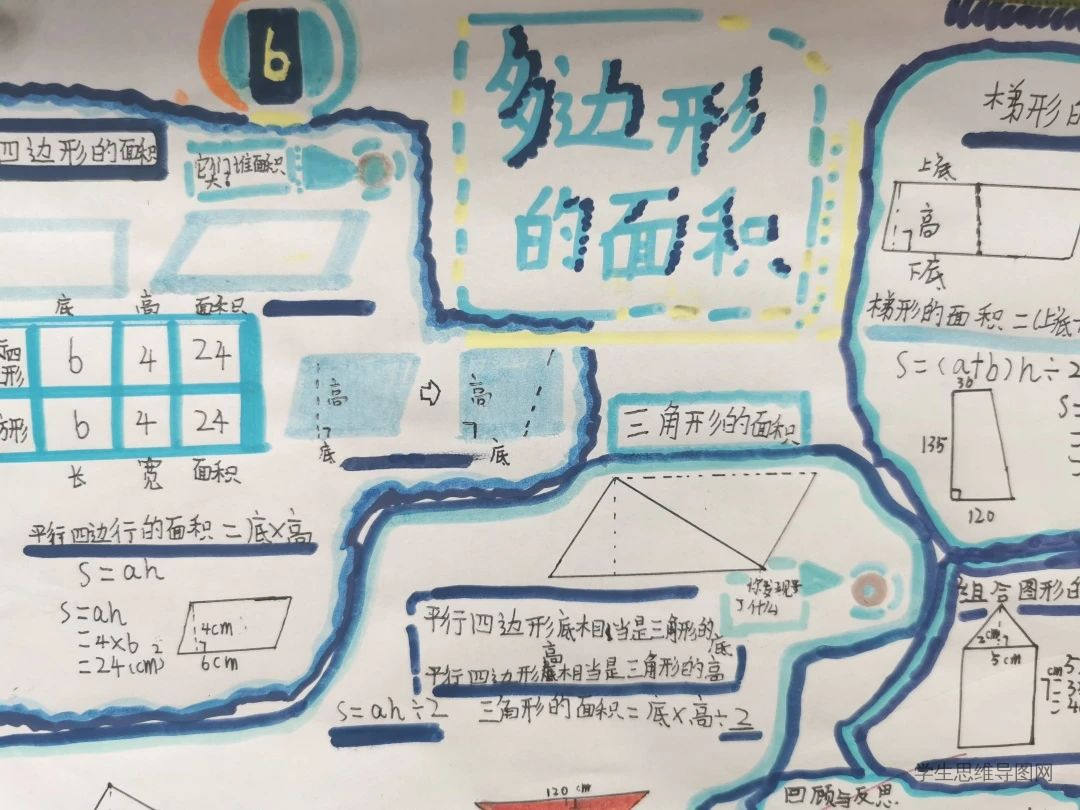 6
多边形
的面积
四边形的面积
它们谁面积
大?
底 高 面积
6 4 24
形 6 4 24
长 宽 面积
高
底
高
底
平行四边行的面积=底×高
S=ah
S=ah
=4×6
=24(cm²)
4cm
6cm
三角形的面积
你发现
了什么
平行四边形底相当是三角形的底
平行四边形高相当是三角形的高
S=ah÷2 三角形的面积=底×高÷2
梯形的
上底
高
下底
梯形的面积=(上底
S=(a+b)h÷2
30
135
120
S=
组合图形的
2cm
5cm
回顾与反思
120 cm
学生思维导图网